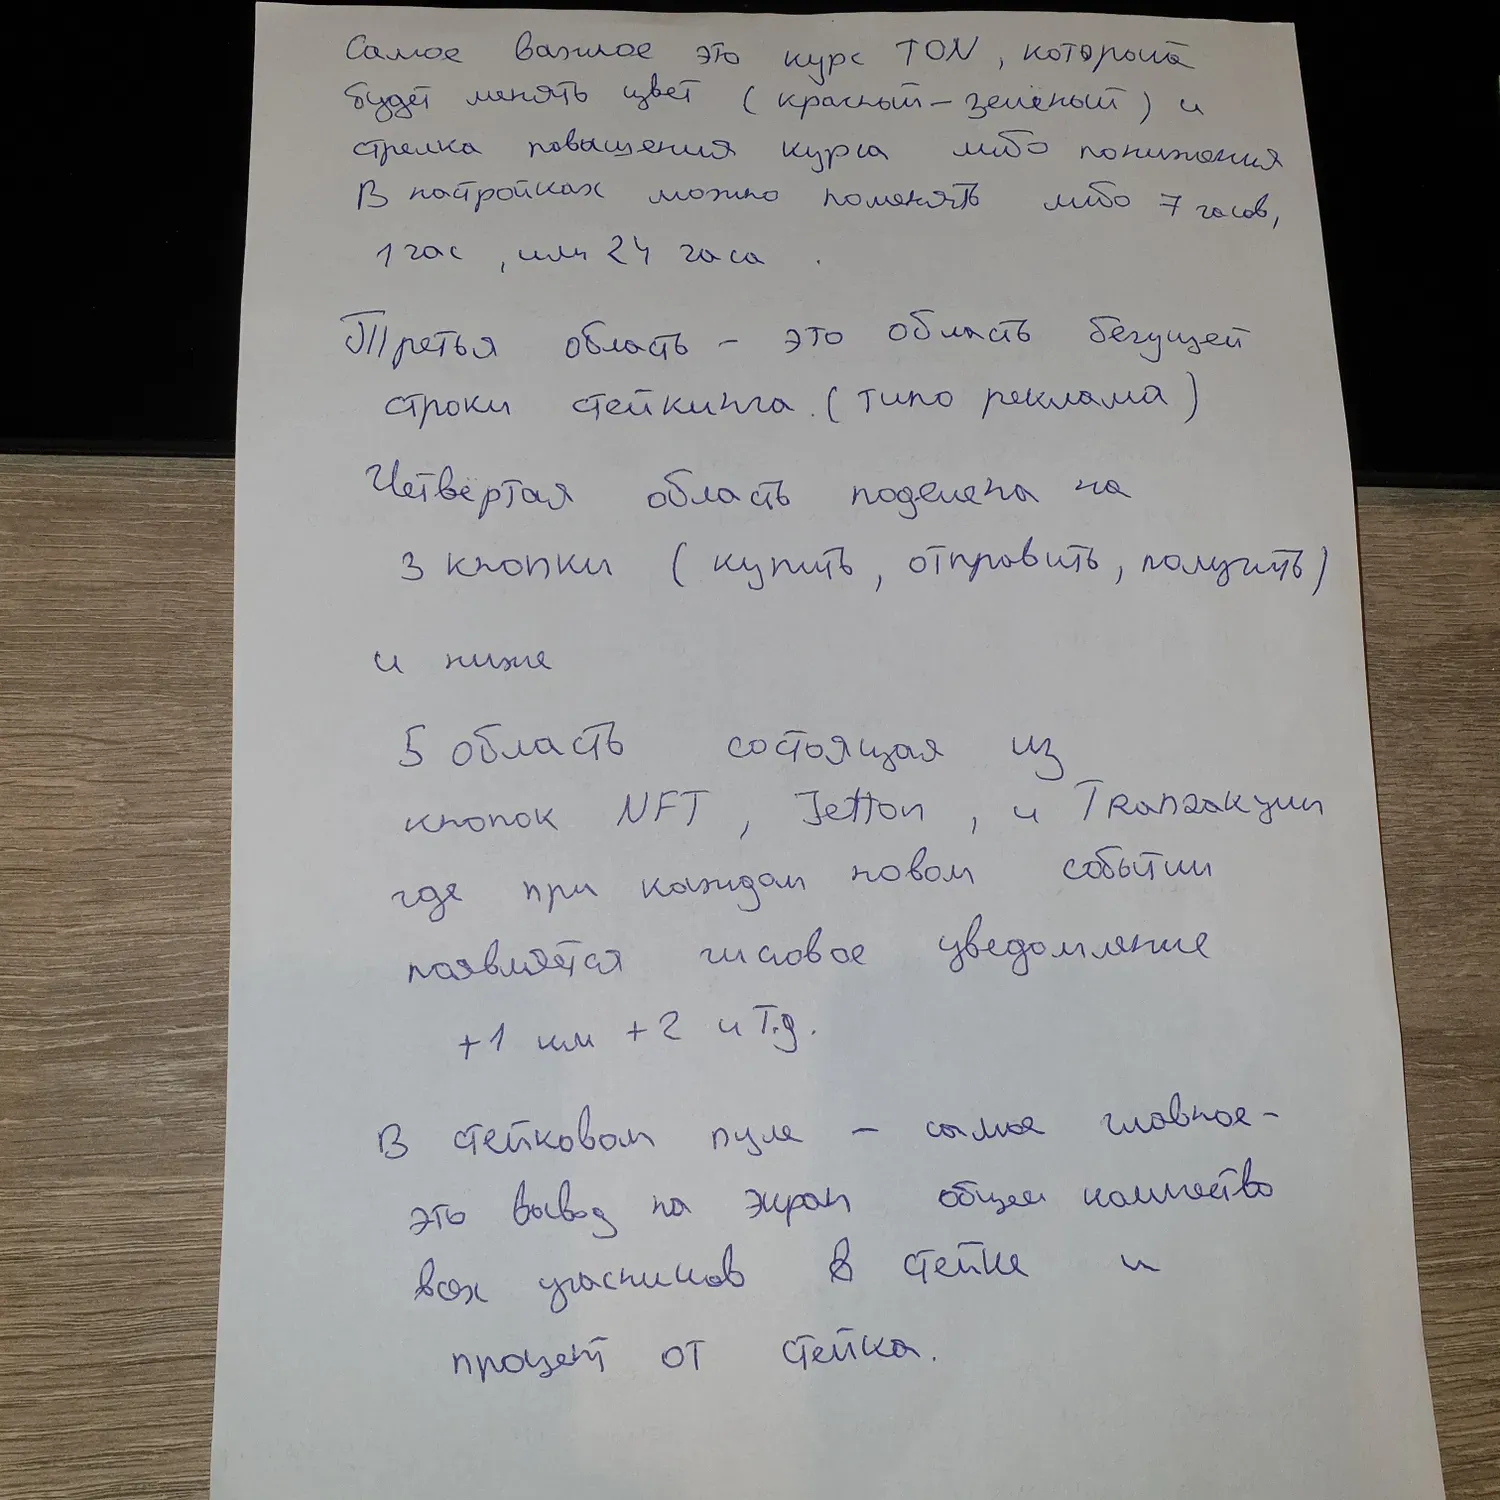 Самое важное это курс TON, который
будет менять цвет (красный – зелёный) и
стрелка повышения курса либо понижения
В настройках можно поменять либо 7 часов,
1 час, или 24 часа.
Третья область – это область бегущей
строки стейкинга. (типо реклама)
Четвёртая область поделена на
3 кнопки (купить, отправить, получить)
и ниже
5 область состоящая из
кнопок NFT, Jetton, и Транзакции
где при каждом новом событии
появляется числовое уведомление
+1 или +2 и т.д.
В стейковом пуле – самое главное –
это вывод на экран общее количество
всех участников в стейке и
процент от стейка.